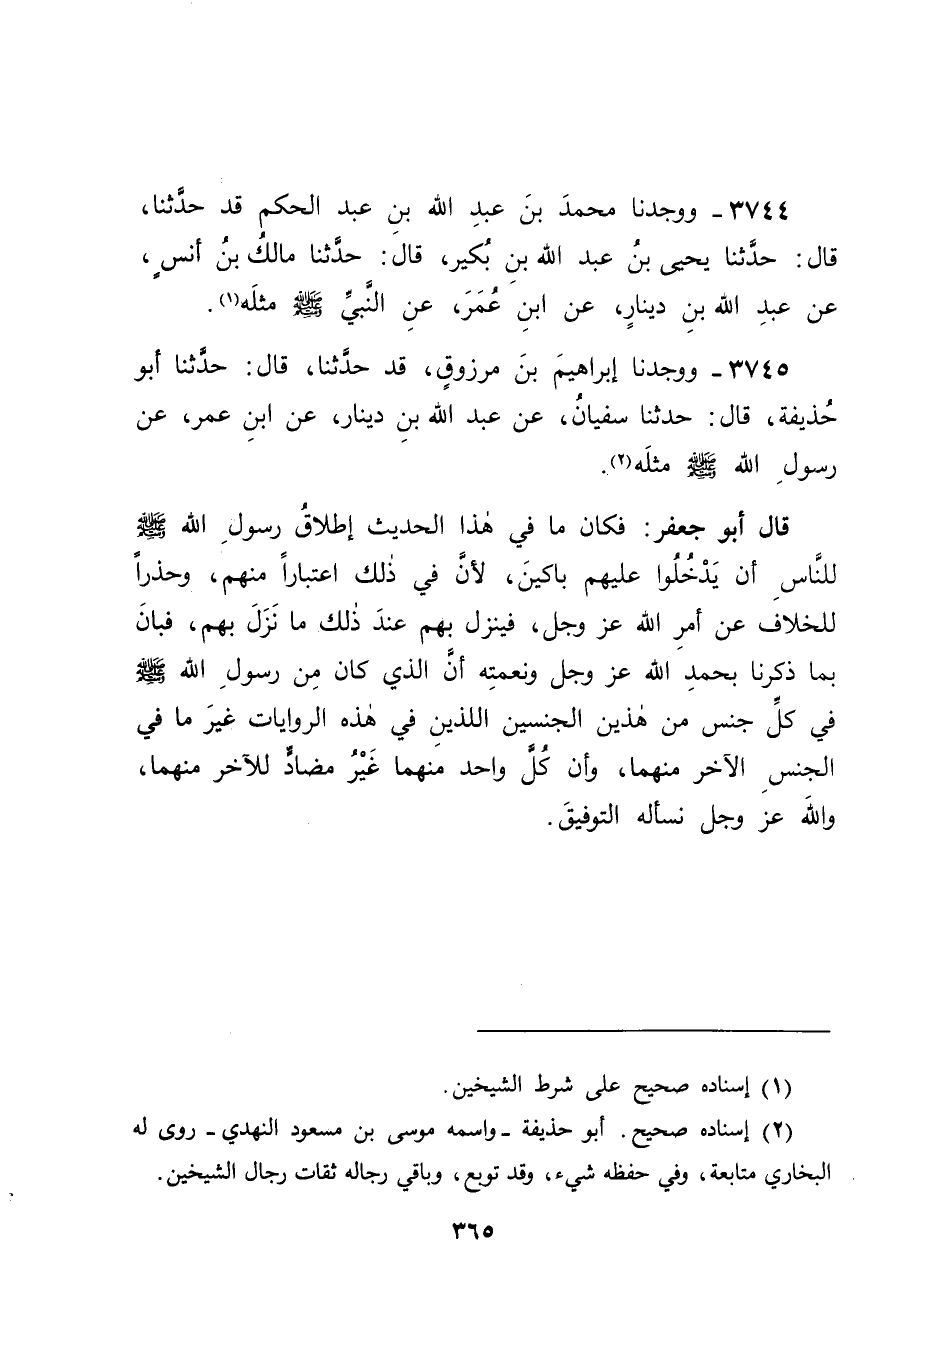 ٣٧٤٤ - ووجدنا محمدَ بنَ عبدِ الله بنِ عبد الحكم قد حدَّثنا،
قال: حدَّثنا يحيى بنُ عبد الله بنِ بُكير، قال: حدَّثنا مالكُ بنُ أنسٍ،
عن عبدِ الله بنِ دينارٍ، عن ابنِ عُمَرَ، عنِ النَّبيِّ ﷺ مثلَه(١).
٣٧٤٥ - ووجدنا إبراهيمَ بنَ مرزوقٍ، قد حدَّثنا، قال: حدَّثنا أبو
حُذيفة، قال: حدثنا سفيانُ، عن عبد الله بنِ دينار، عن ابنِ عمر، عن
رسولِ الله ﷺ مثلَه(٢).
قال أبو جعفر: فكان ما في هٰذا الحديث إطلاقُ رسولِ الله ﷺ
للنَّاسِ أن يَدْخُلُوا عليهم باكينَ، لأنَّ في ذٰلك اعتباراً منهم، وحذراً
للخلاف عن أمرِ الله عز وجل، فينزل بهم عندَ ذٰلك ما نَزَلَ بهم، فبانَ
بما ذكرنا بحمدِ الله عز وجل ونعمتِه أنَّ الذي كان مِن رسولِ الله ﷺ
في كلِّ جنس من هٰذين الجنسين اللذينِ في هٰذه الروايات غيرَ ما في
الجنسِ الآخر منهما، وأن كُلَّ واحد منهما غَيْرُ مضادٍّ للآخر منهما،
واللهَ عز وجل نسأله التوفيقَ.
(١) إسناده صحيح على شرط الشيخين.
(٢) إسناده صحيح. أبو حذيفة - واسمه موسى بن مسعود النهدي - روى له
البخاري متابعة، وفي حفظه شيء، وقد توبع، وباقي رجاله ثقات رجال الشيخين.
٣٦٥